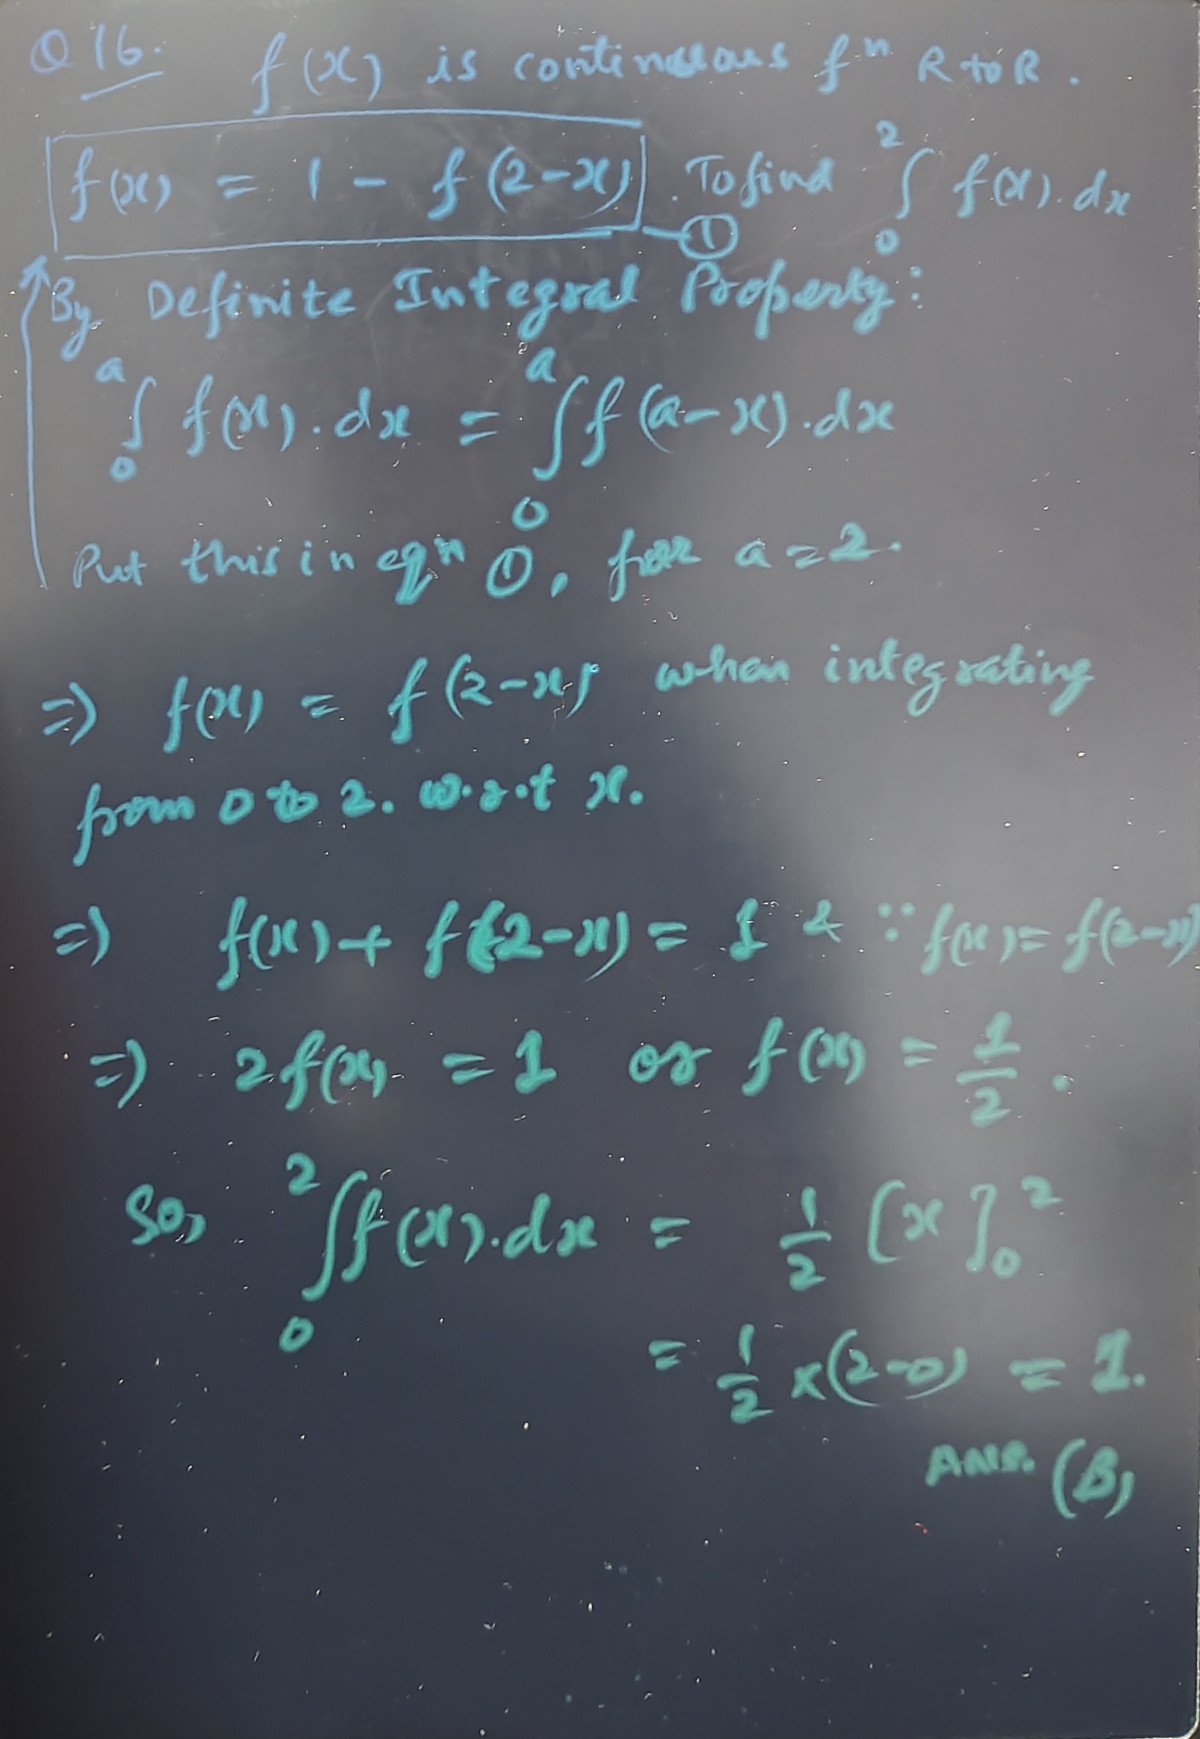 Q 16. f(x) is continuous fⁿ R to R.
f(x) = 1 - f(2-x) . To find ∫₀² f(x).dx
①
By Definite Integral Property:
∫₀ᵃ f(x).dx = ∫₀ᵃ f(a-x).dx
Put this in eqⁿ ①, for a=2.
⇒ f(x) = f(2-x) when integrating
from 0 to 2. w.r.t x.
⇒ f(x) + f(2-x) = 1 & ∵ f(x) = f(2-x)
⇒ 2f(x) = 1 or f(x) = 1/2.
So, ∫₀² f(x).dx = 1/2 [x]₀²
= 1/2 x(2-0) = 1.
ANS. (B)